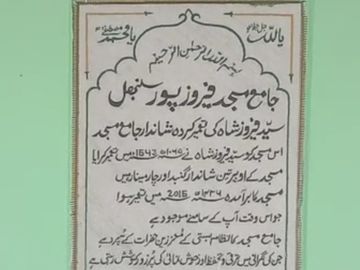 یا اللہ جل جلالہ یا محمد ﷺ
بسم اللہ الرحمٰن الرحیم
جامع مسجد فیروز پور سنبھل
سیّد فیروز شاہ کی تعمیر کردہ شاندار جامع مسجد
اس مسجد کو سید فیروز شاہ نے میں تعمیر کرایا
مسجد کے اوپر تین شاندار گنبد اور چار مینار ہیں
مسجد کا برآمدہ ۱۴۳۶ھ 2015ء میں تعمیر ہوا
جو اس وقت آپ کے سامنے موجود ہے
جامع مسجد کا انتظام بستی کے معزز ین حضرات کے سپرد ہے
جن کی نگرانی میں ترقی و تحفظ اور کی پرزور کوشش رہتی ہے